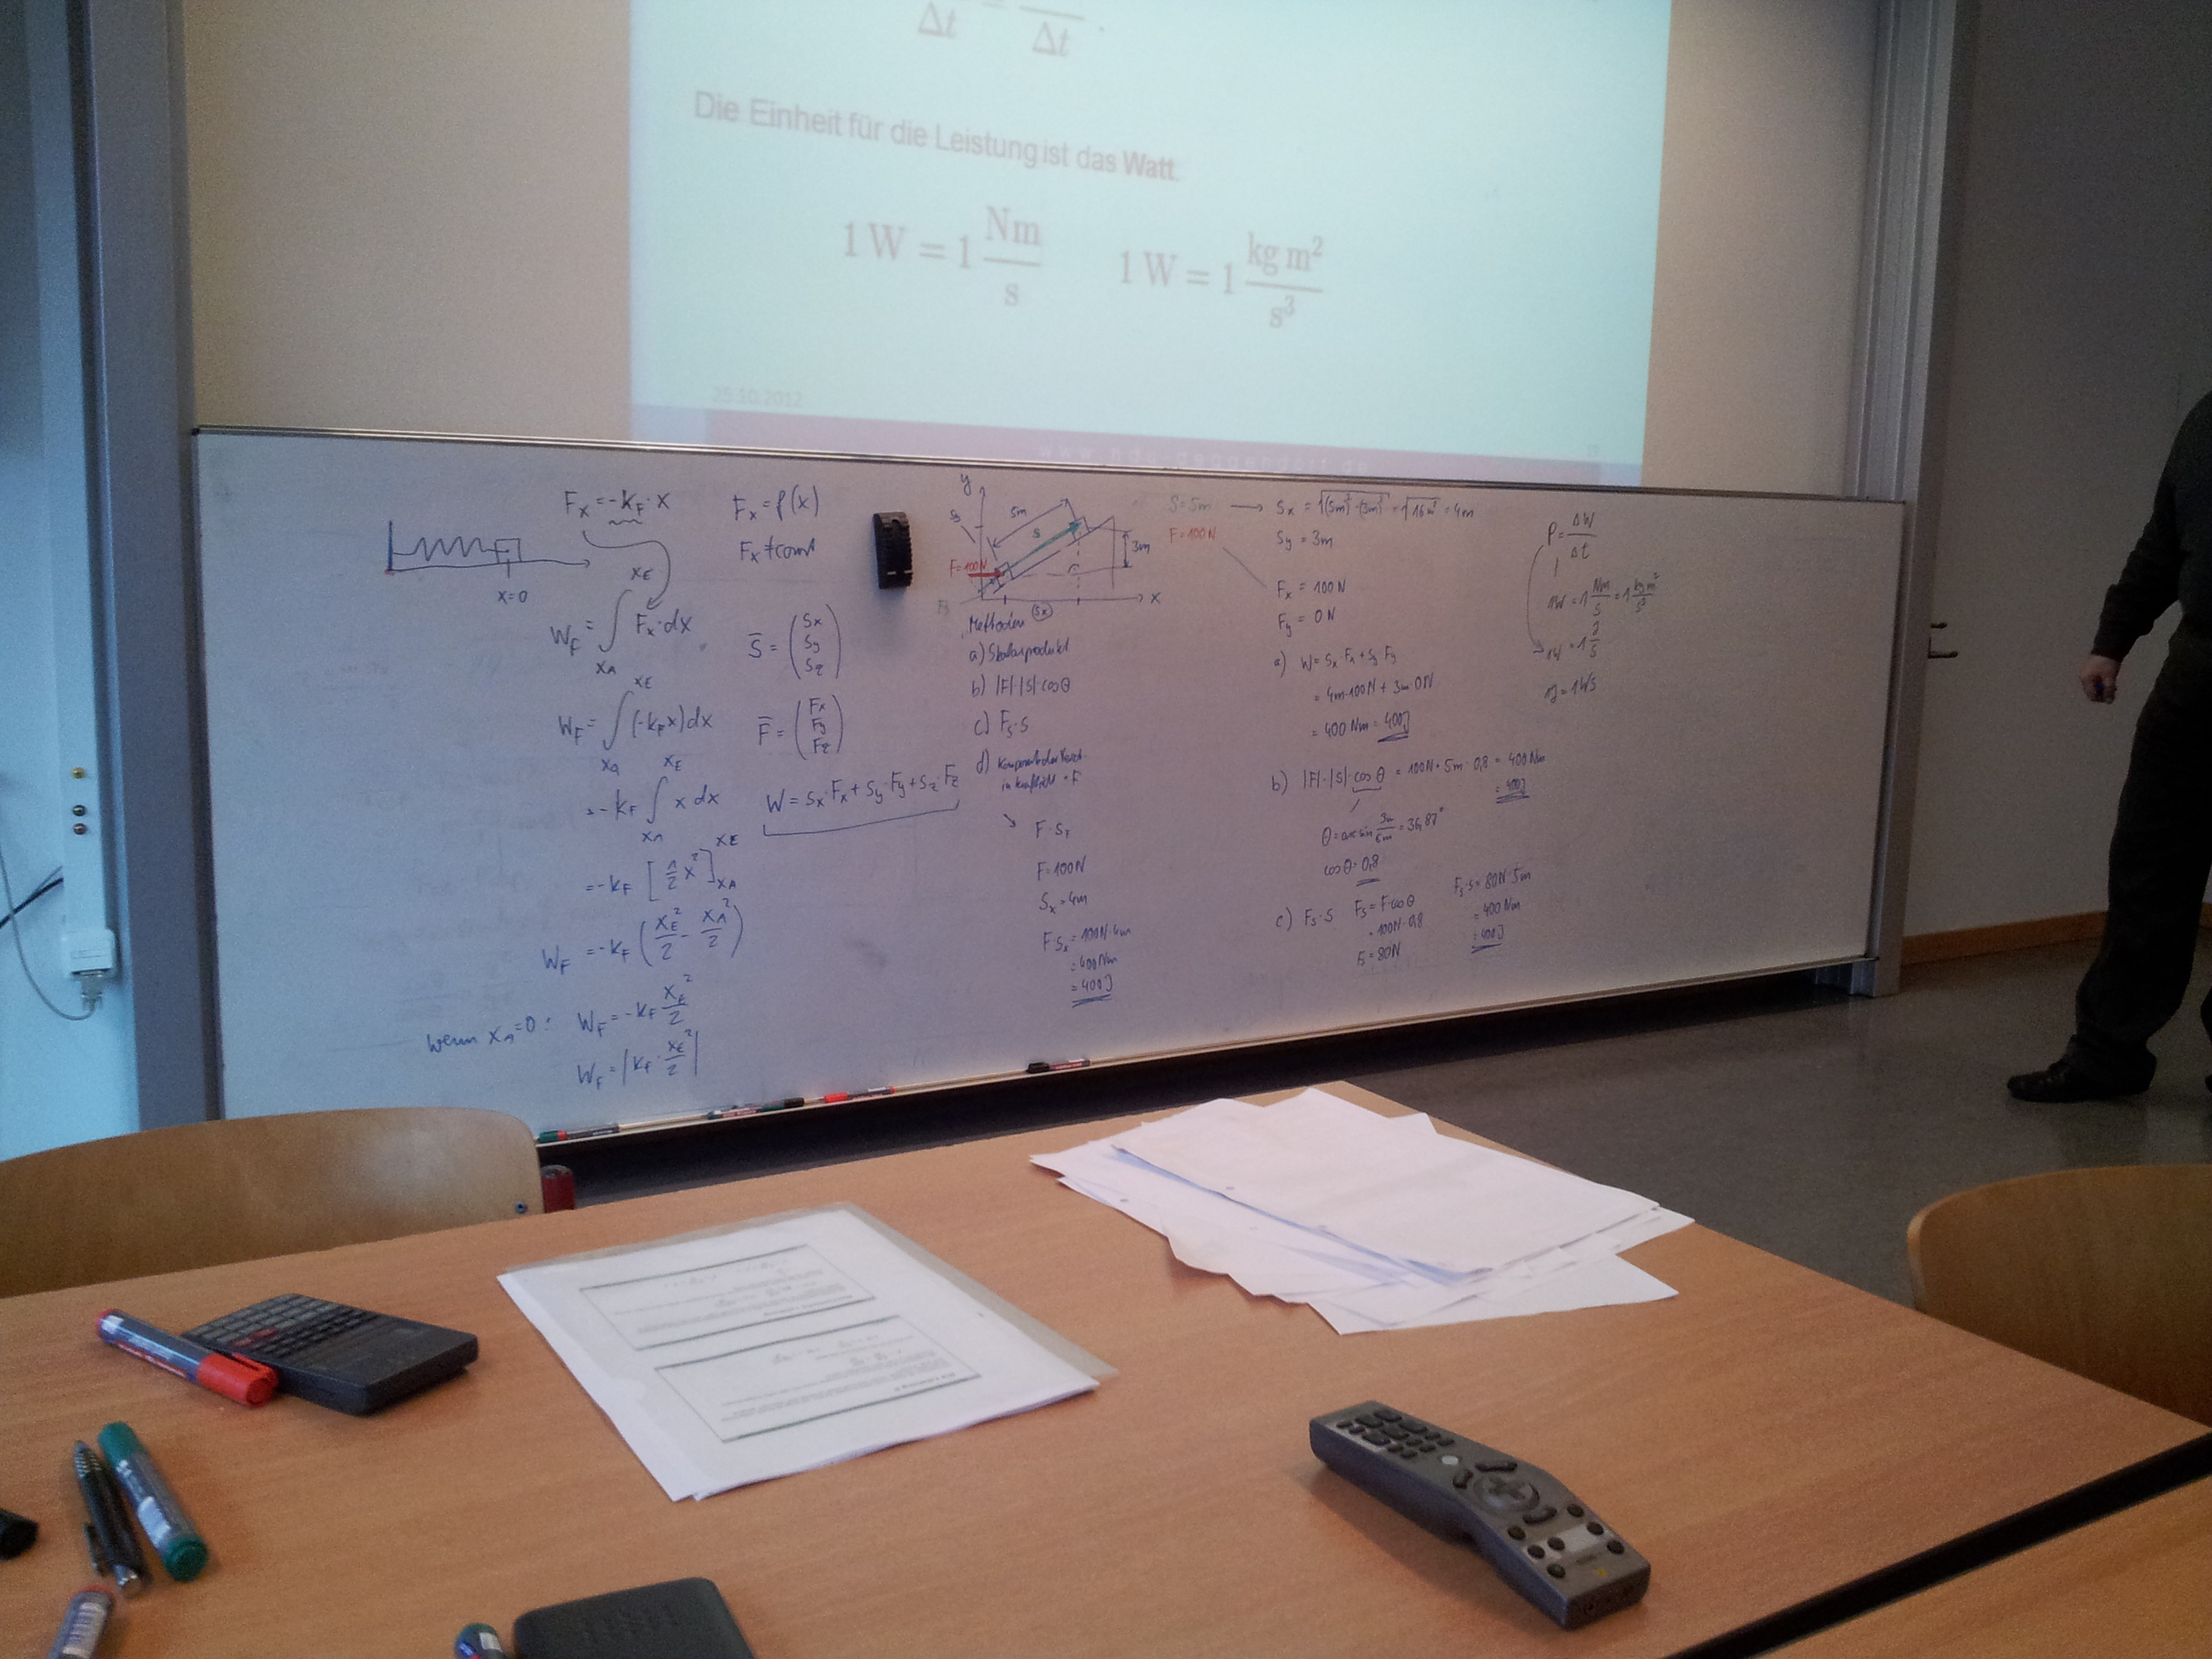 Δt = Δt .
Die Einheit für die Leistung ist das Watt.
1 W = 1 Nm/s    1 W = 1 kg m²/s³
25.10.2012
F_x = -k_F · x
x=0
W_F = ∫_{x_A}^{x_E} F_x · dx
W_F = ∫_{x_A}^{x_E} (-k_F x) dx
= -k_F ∫_{x_A}^{x_E} x dx
= -k_F [1/2 x²]_{x_A}^{x_E}
W_F = -k_F (x_E²/2 - x_A²/2)
wenn x_A = 0 : W_F = -k_F x_E²/2
W_F = |k_F · x_E²/2|
F_x = f(x)
F_x ≠ const
S = (S_x S_y S_z)
F = (F_x F_y F_z)
W = S_x · F_x + S_y · F_y + S_z · F_z
y
5m
S
3m
F=100N
x
(S_x)
Methoden
a) Skalarprodukt
b) |F|·|S|·cos θ
c) F_s · S
d)
F · S_x
F = 100N
S_x = 4m
F·S_x = 100N·4m
= 400Nm
= 400J
S = 5m → S_x = √((5m)² - (3m)²) = √16m² = 4m
F = 100N
S_y = 3m
F_x = 100 N
F_y = 0 N
a) W = S_x · F_x + S_y F_y
= 4m·100N + 3m·0N
= 400 Nm = 400J
b) |F|·|S|·cos θ = 100N · 5m · 0,8 = 400 Nm
= 400J
θ = arcsin 3m/5m = 36,87°
cos θ = 0,8
c) F_s · S F_s = F·cos θ
= 100N · 0,8
F_s = 80N
F_s · s = 80N · 5m
= 400 Nm
= 400J
P = ΔW/Δt
1W = 1 Nm/s = 1 kg m²/s³
1W = 1 J/s
1J = 1Ws